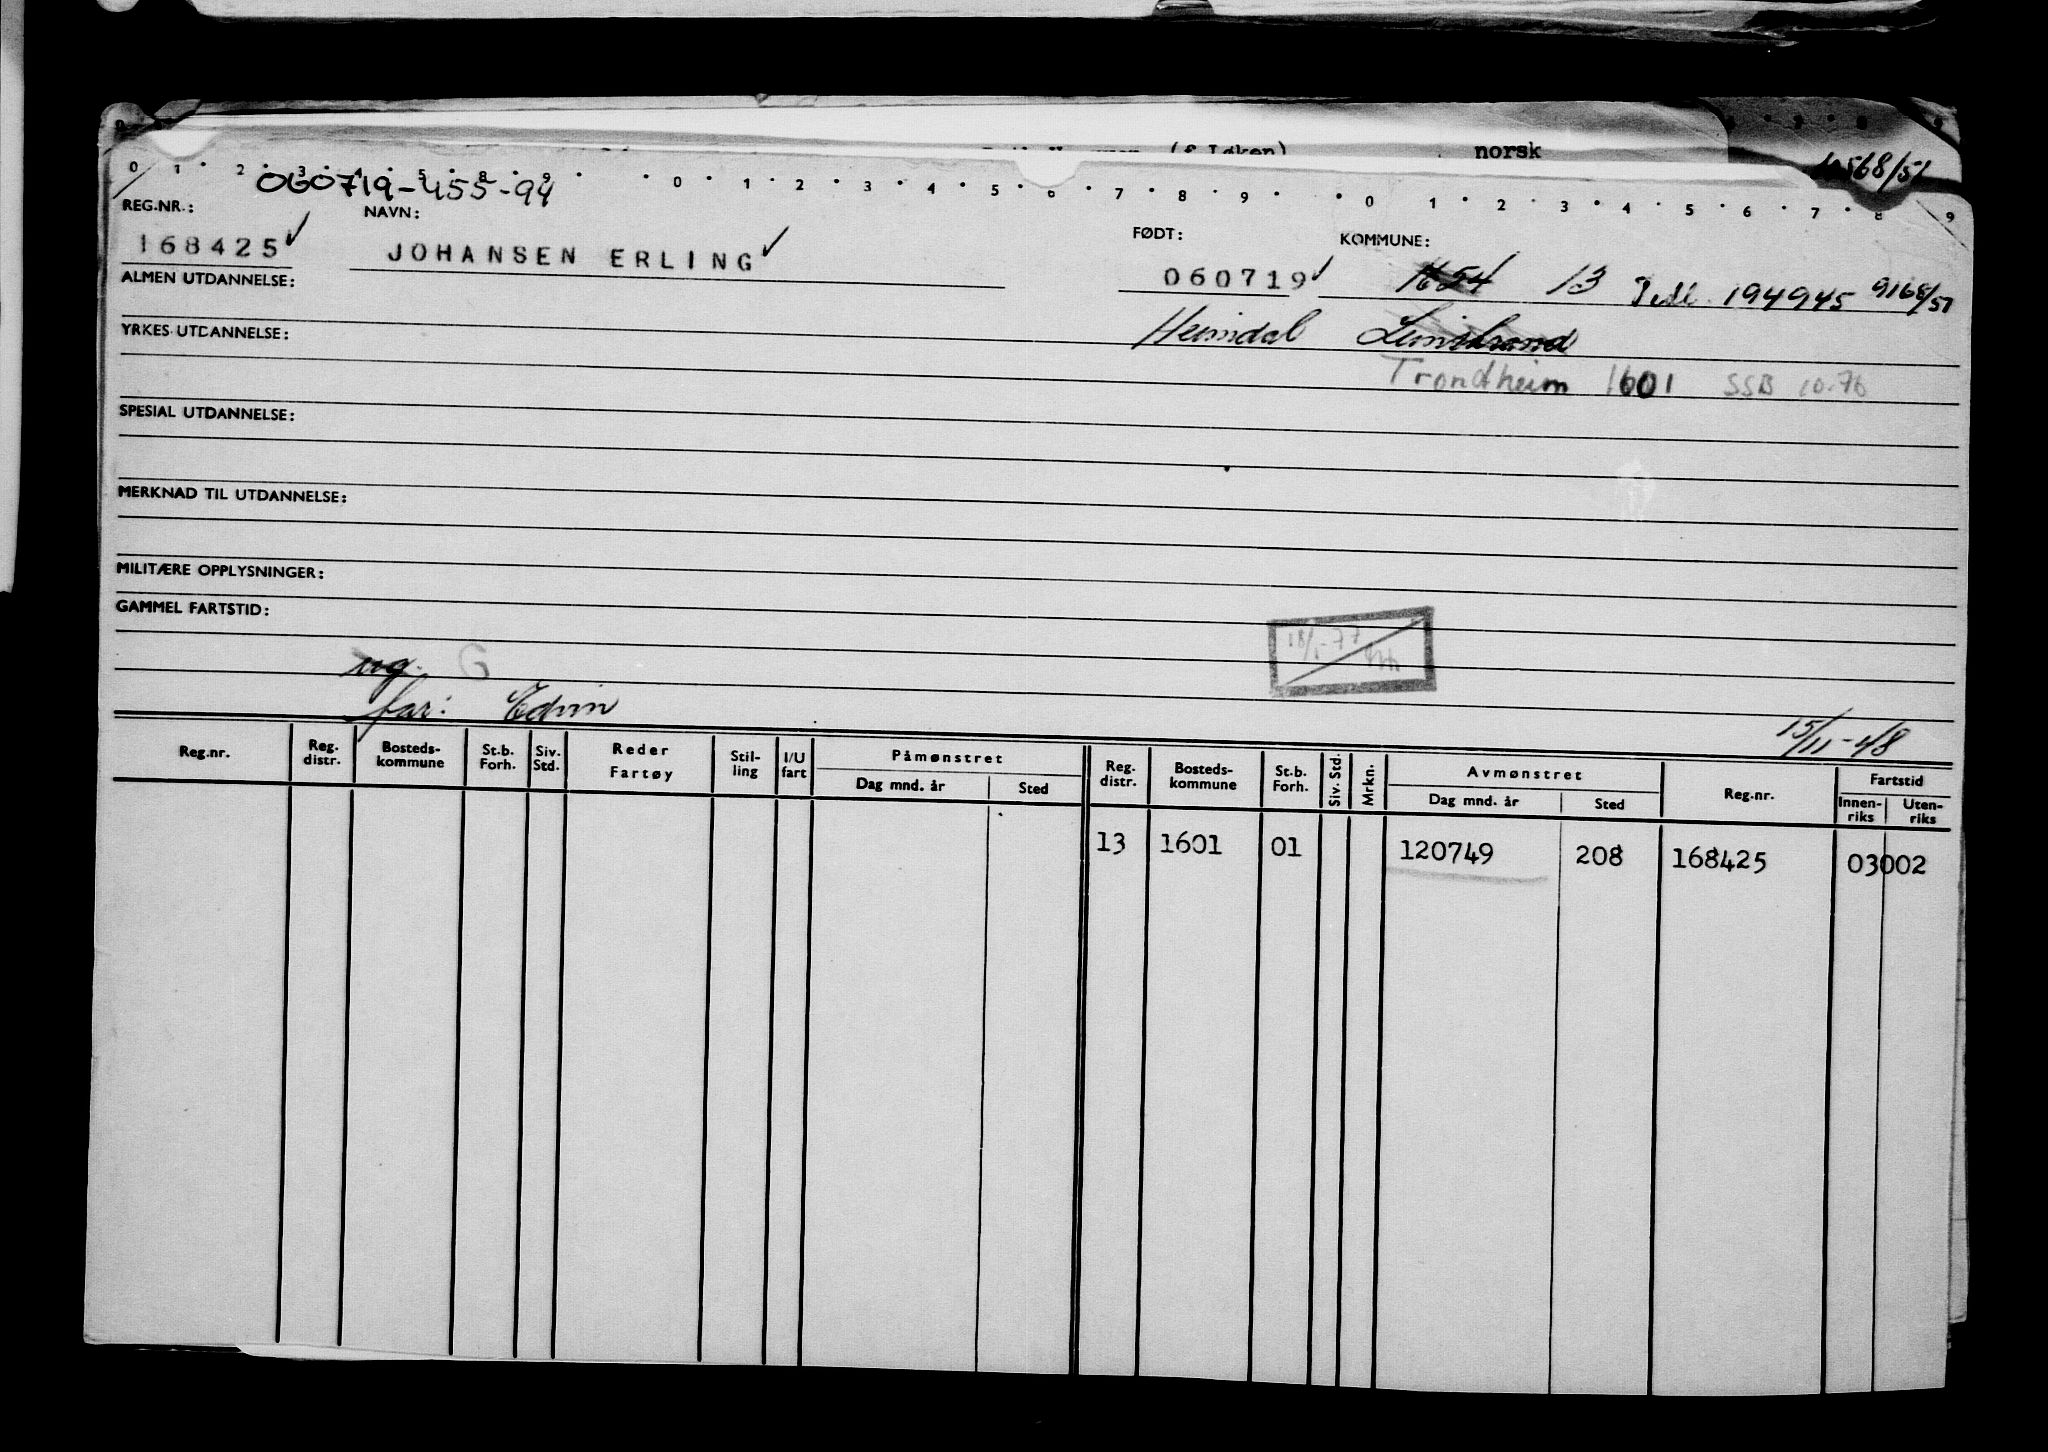 (f Løken) norsk
568/51
0 1 2 3 4 5 8 9 0 1 2 3 4 5 6 7 8 9 0 1 2 3 4 5 6 7 8 9
060719-455-94
REG.NR.: NAVN: FØDT: KOMMUNE:
168425 JOHANSEN ERLING 060719 1654 13 194945 9168/57
ALMEN UTDANNELSE:
Heimdal Leinstrand
YRKES UTDANNELSE:
Trondheim 1601 SSB 10-76
SPESIAL UTDANNELSE:
MERKNAD TIL UTDANNELSE:
MILITÆRE OPPLYSNINGER:
GAMMEL FARTSTID:
18/1-77
ug. G
far: Edvin
15/11-48
Reg.nr. Reg. distr. Bosteds-kommune St.b. Forh. Siv. Std. Reder Fartøy Stil-ling I/U fart Påmønstret Dag mnd. år Sted Reg. distr. Bosteds-kommune St.b. Forh. Siv. Std. Mrkn. Avmønstret Dag mnd. år Sted Reg.nr. Fartstid Innen-riks Uten-riks
13 1601 01 120749 208 168425 03002